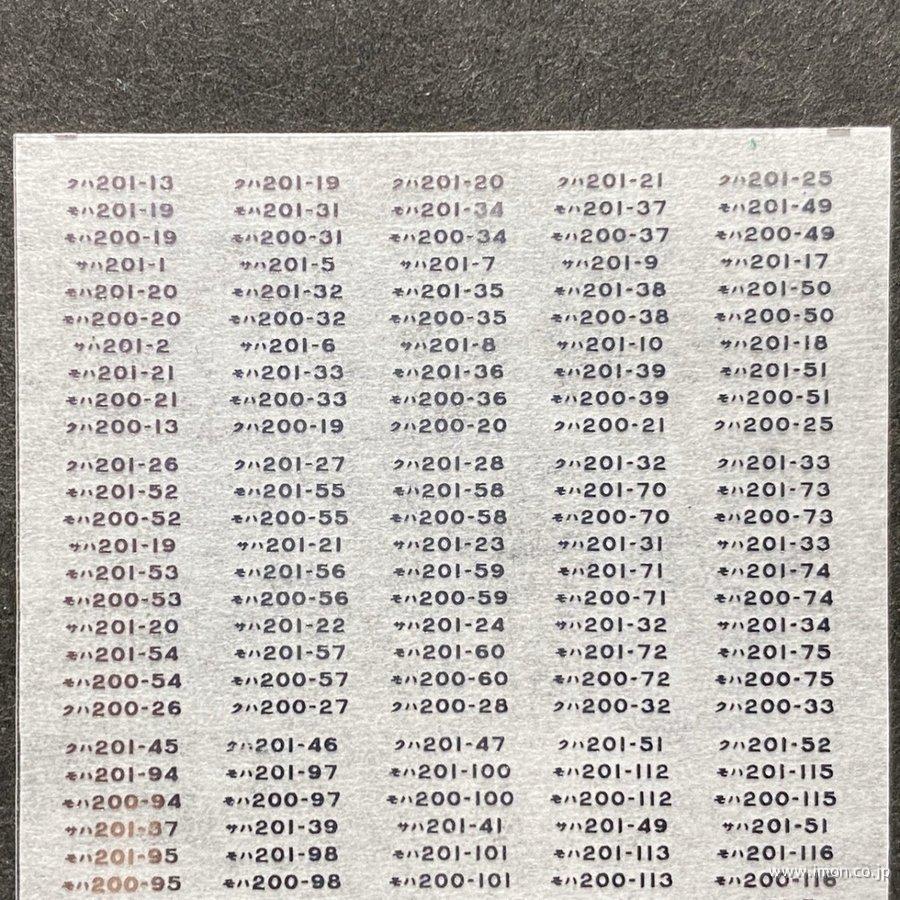 クハ201-13 クハ201-19 クハ201-20 クハ201-21 クハ201-25
モハ201-19 モハ201-31 モハ201-34 モハ201-37 モハ201-49
モハ200-19 モハ200-31 モハ200-34 モハ200-37 モハ200-49
サハ201-1 サハ201-5 サハ201-7 サハ201-9 サハ201-17
モハ201-20 モハ201-32 モハ201-35 モハ201-38 モハ201-50
モハ200-20 モハ200-32 モハ200-35 モハ200-38 モハ200-50
サハ201-2 サハ201-6 サハ201-8 サハ201-10 サハ201-18
モハ201-21 モハ201-33 モハ201-36 モハ201-39 モハ201-51
モハ200-21 モハ200-33 モハ200-36 モハ200-39 モハ200-51
クハ200-13 クハ200-19 クハ200-20 クハ200-21 クハ200-25
クハ201-26 クハ201-27 クハ201-28 クハ201-32 クハ201-33
モハ201-52 モハ201-55 モハ201-58 モハ201-70 モハ201-73
モハ200-52 モハ200-55 モハ200-58 モハ200-70 モハ200-73
サハ201-19 サハ201-21 サハ201-23 サハ201-31 サハ201-33
モハ201-53 モハ201-56 モハ201-59 モハ201-71 モハ201-74
モハ200-53 モハ200-56 モハ200-59 モハ200-71 モハ200-74
サハ201-20 サハ201-22 サハ201-24 サハ201-32 サハ201-34
モハ201-54 モハ201-57 モハ201-60 モハ201-72 モハ201-75
モハ200-54 モハ200-57 モハ200-60 モハ200-72 モハ200-75
クハ200-26 クハ200-27 クハ200-28 クハ200-32 クハ200-33
クハ201-45 クハ201-46 クハ201-47 クハ201-51 クハ201-52
モハ201-94 モハ201-97 モハ201-100 モハ201-112 モハ201-115
モハ200-94 モハ200-97 モハ200-100 モハ200-112 モハ200-115
サハ201-37 サハ201-39 サハ201-41 サハ201-49 サハ201-51
モハ201-95 モハ201-98 モハ201-101 モハ201-113 モハ201-116
モハ200-95 モハ200-98 モハ200-101 モハ200-113 モハ200-116
www.imon.co.jp